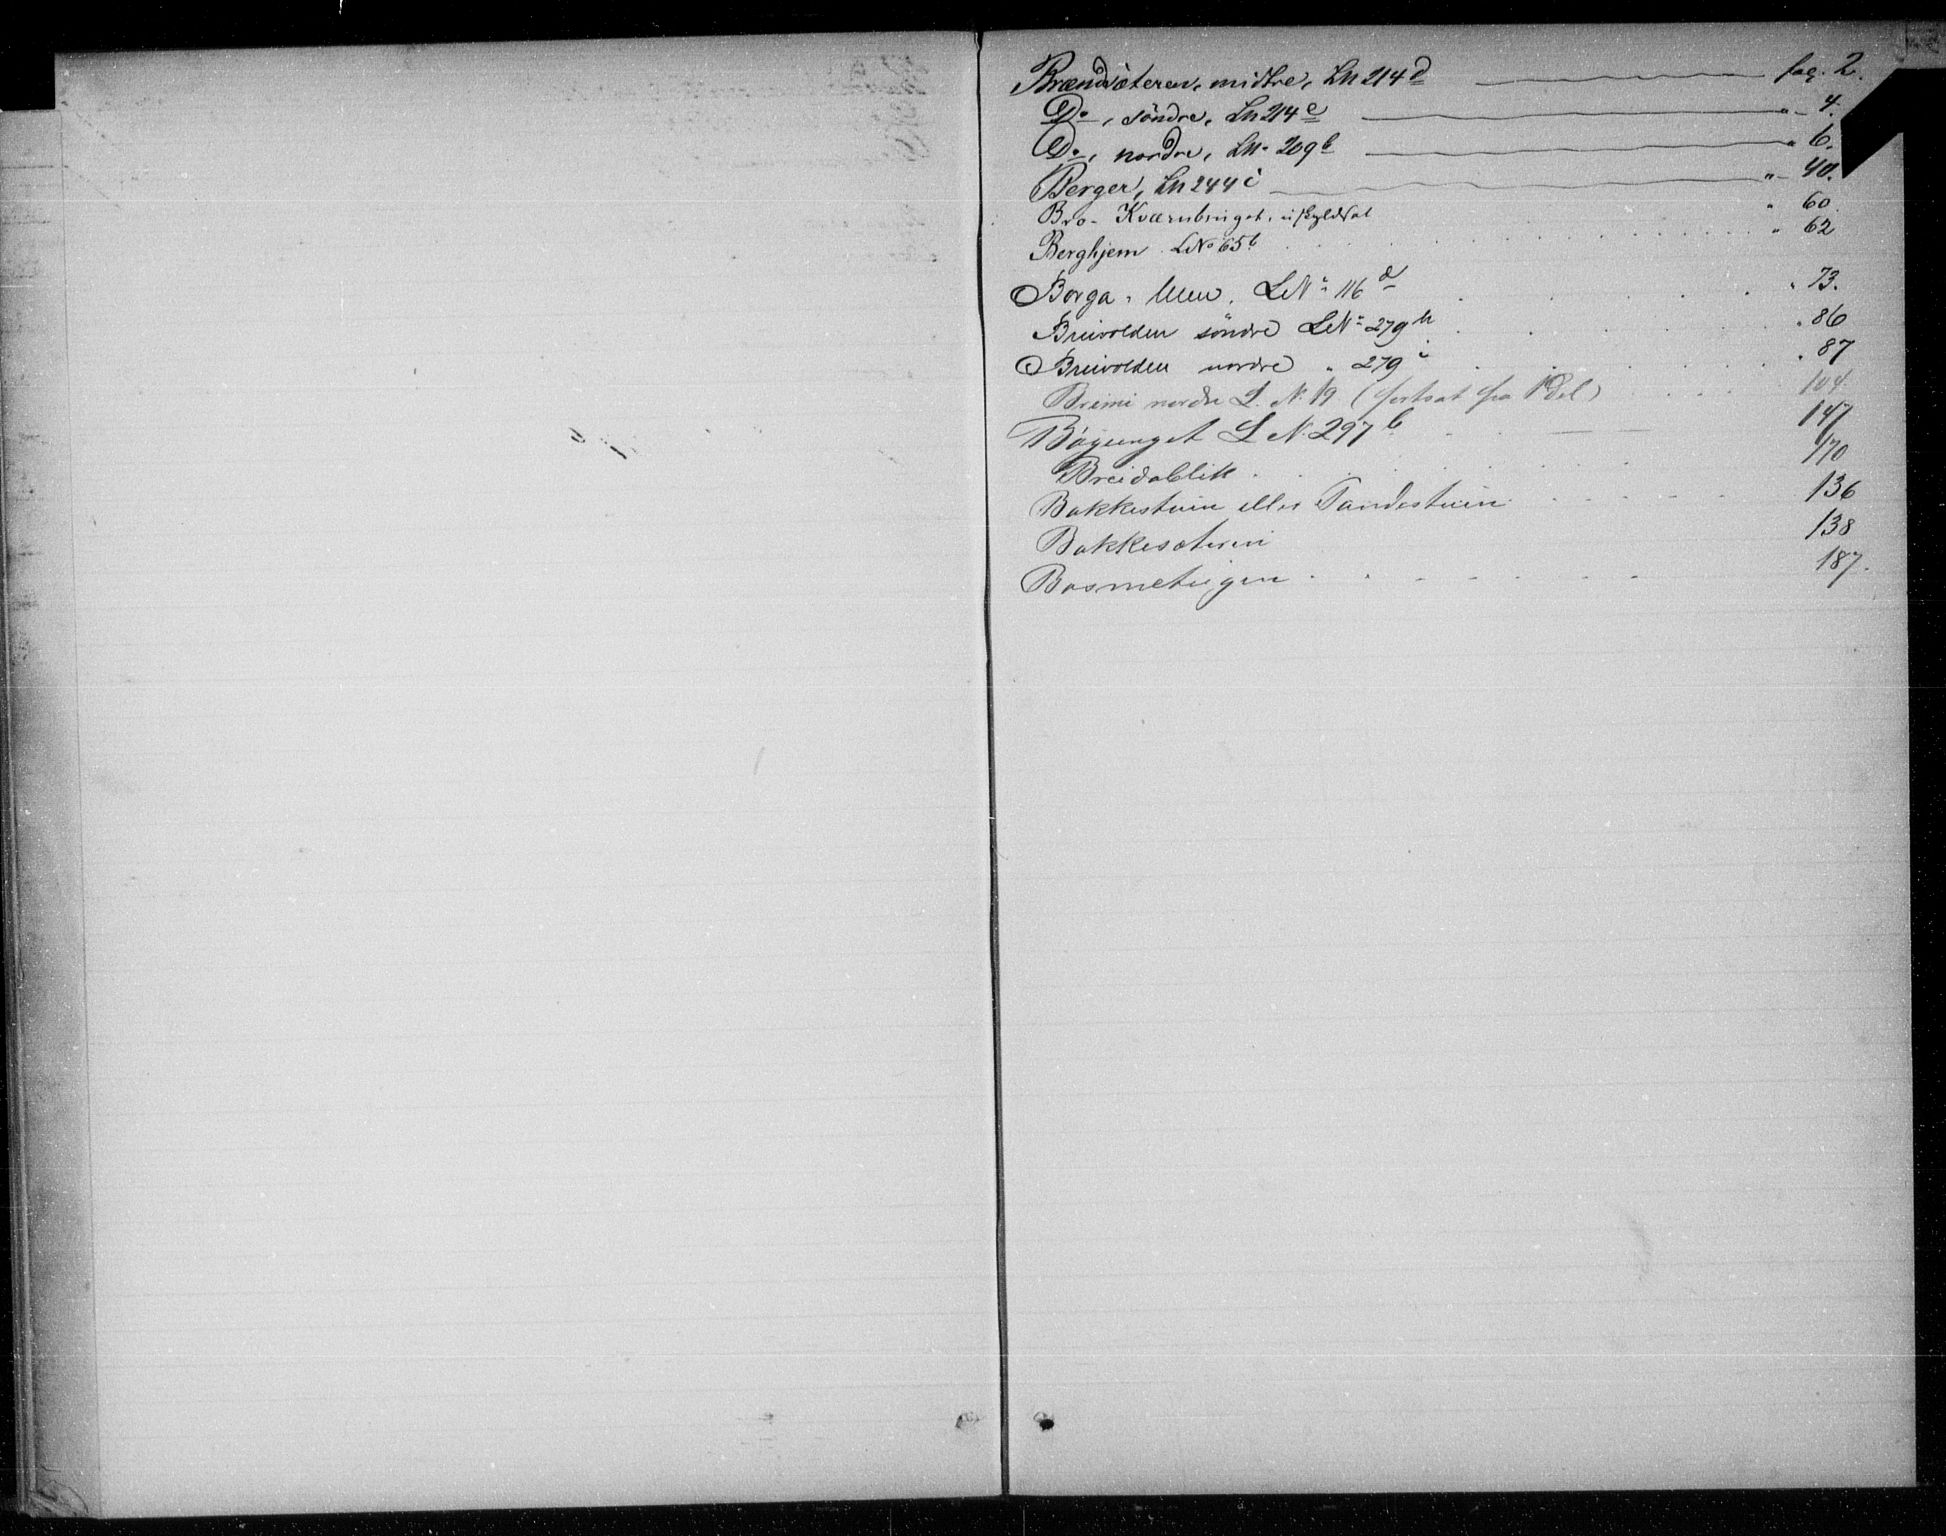 Brændsæteren, midtre, LN 214 d pag. 2.
Do, söndre, LN 214 e " - 4.
Do, nordre, LN. 209 b " 6.
Berger, LN 244 i " - 40.
Bro- Kværnbruget, uskyldsat " 60.
Berghjem LNo 65 b " 62
Borga, LNo 116 d " 73.
Breivolden söndre LNo 279 h " 86
Breivolden nordre " 279 i " 87
Bremi nordre L. N. 19 (fortsat fra 1 Del) 104.
L N. 297 b 147
Breidablik 170
Bakkestuen eller Sandestuen 136
Bakkesæteren 138
187.